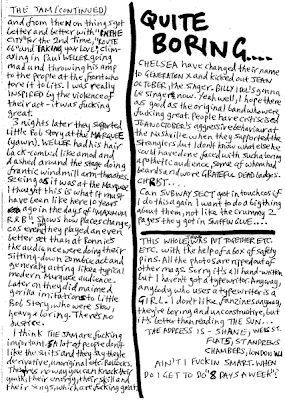 THE JAM (CONTINUED)
and from then on things got
better and better with "IN THE
CITY" for the 2nd time, "ROUTE
66" and "TAKING MY LOVE", clim-
axing in Paul WELLER going
mad and throwing his amp
to the people at the front who
tore it to bits. I was really
INSPIRED by the violence of
their act - it was fucking
great.
3 nights later they supported
Little Bob Story at the MARQUEE
(yawn). WELLER had his hair
back-combed like a mod and
dashed around the stage doing
frantic windmill arm-thrashes.
Seeing as it was at the Marquee
I thought this is what it must
have been like here 10 years
ago in the days of "MAXIMUM
R&B". Shows how places change
cos even tho they played an even
better set than at Ronnies
the audience were doing their
sitting-down zombie act and
generally acting like a typical
modern Marquee audience.
Later on they did mained a
gorilla imitations to Little
Bob Story, who were slow
heavy & boring. Theres no
justice.
I think THE JAM are fucking
important. A lot of people don't
like the suits and they say their
derivative, unoriginal etc. Bollocks.
Theyres no way you can knock their
youth, their energy, their skill and
their songs, which are fucking great.
QUITE
BORING....
CHELSEA have changed their name
to GENERATION X and kicked out JEAN
OCTOBER (the singer. BILLY IDOL's gonna
be singer now. Yeah well, I hope there
as good as the original band who were
fucking great. People have criticised
JEAN OCTOBER's aggressive behaviour at
the nashville when they supported the
Stranglers but I don't know what else he
could have done faced with such a boring
apathetic audience, some of whom had
beards and wore GRATEFUL DEAD badges.
CHRIST...
Can SUBWAY SECT get in touch cos if
I do this again I want to do a big thing
about them, not like the crummy 2
pages they got in SNIFFIN GLUE....
THIS WHOLE MAG WAS PUT TOGETHER ETC
ETC. with the help of a box of safety
pins. All the photos are ripped out of
other mags. Sorry its all hand-written
but I haven't got a typewriter. Anyway,
anybody who uses a typewriter is a
GIRL. I don't like fanzines anyway,
they're boring and unconstructive, but
its better than reading THE SUN...
THE ADDRESS IS - SHANE,
FLATS, ST ANDREWS
CHAMBERS, LONDON W1
AIN'T I FUCKIN SMART. WHEN
DO I GET TO DO "8 DAYS A WEEK"?